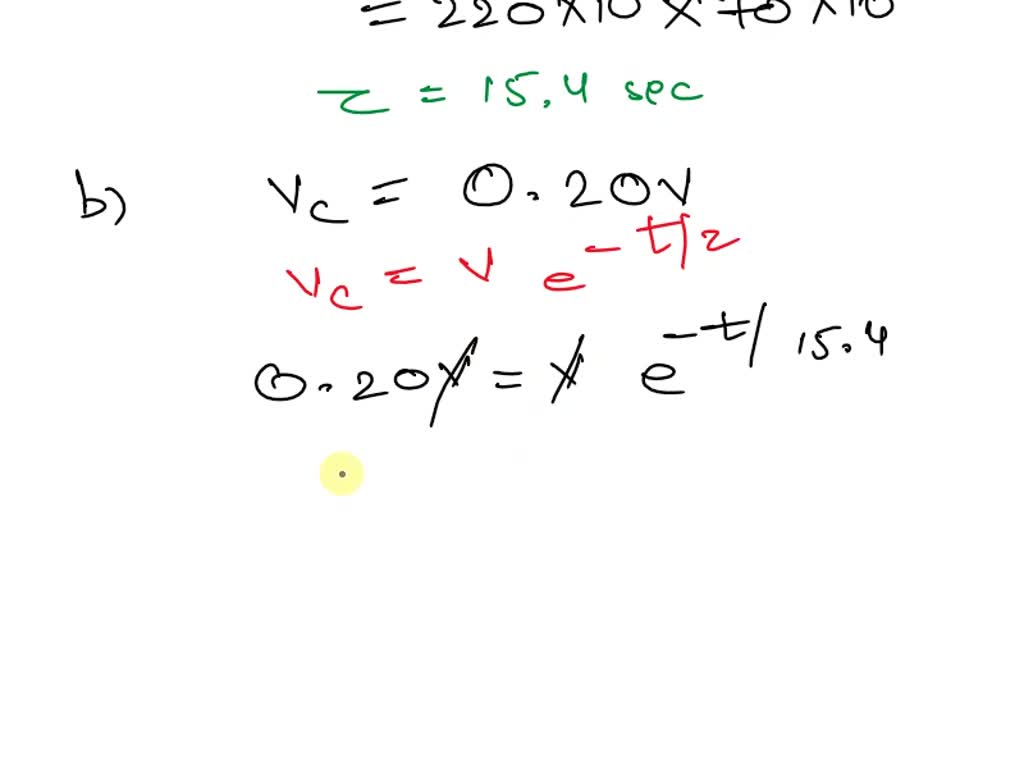 = 220 x 10 x 70 x 10
τ = 15.4 sec
b) Vc = 0.20V
Vc = V e^-t/τ
0.20V = V e^-t/15.4